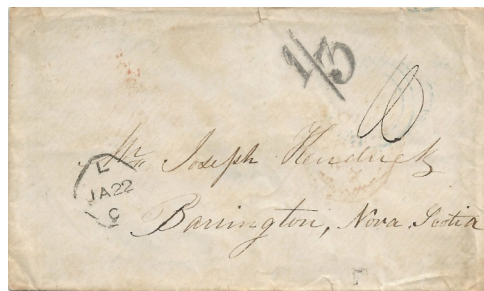 1/3
Mr Joseph Kendrick
L
JA 22
C
Barrington, Nova Scotia